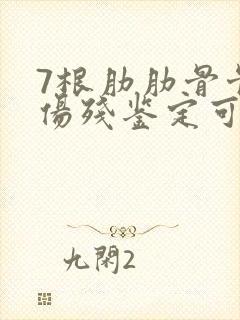 7根肋肋骨骨
伤残鉴定可
九閑2